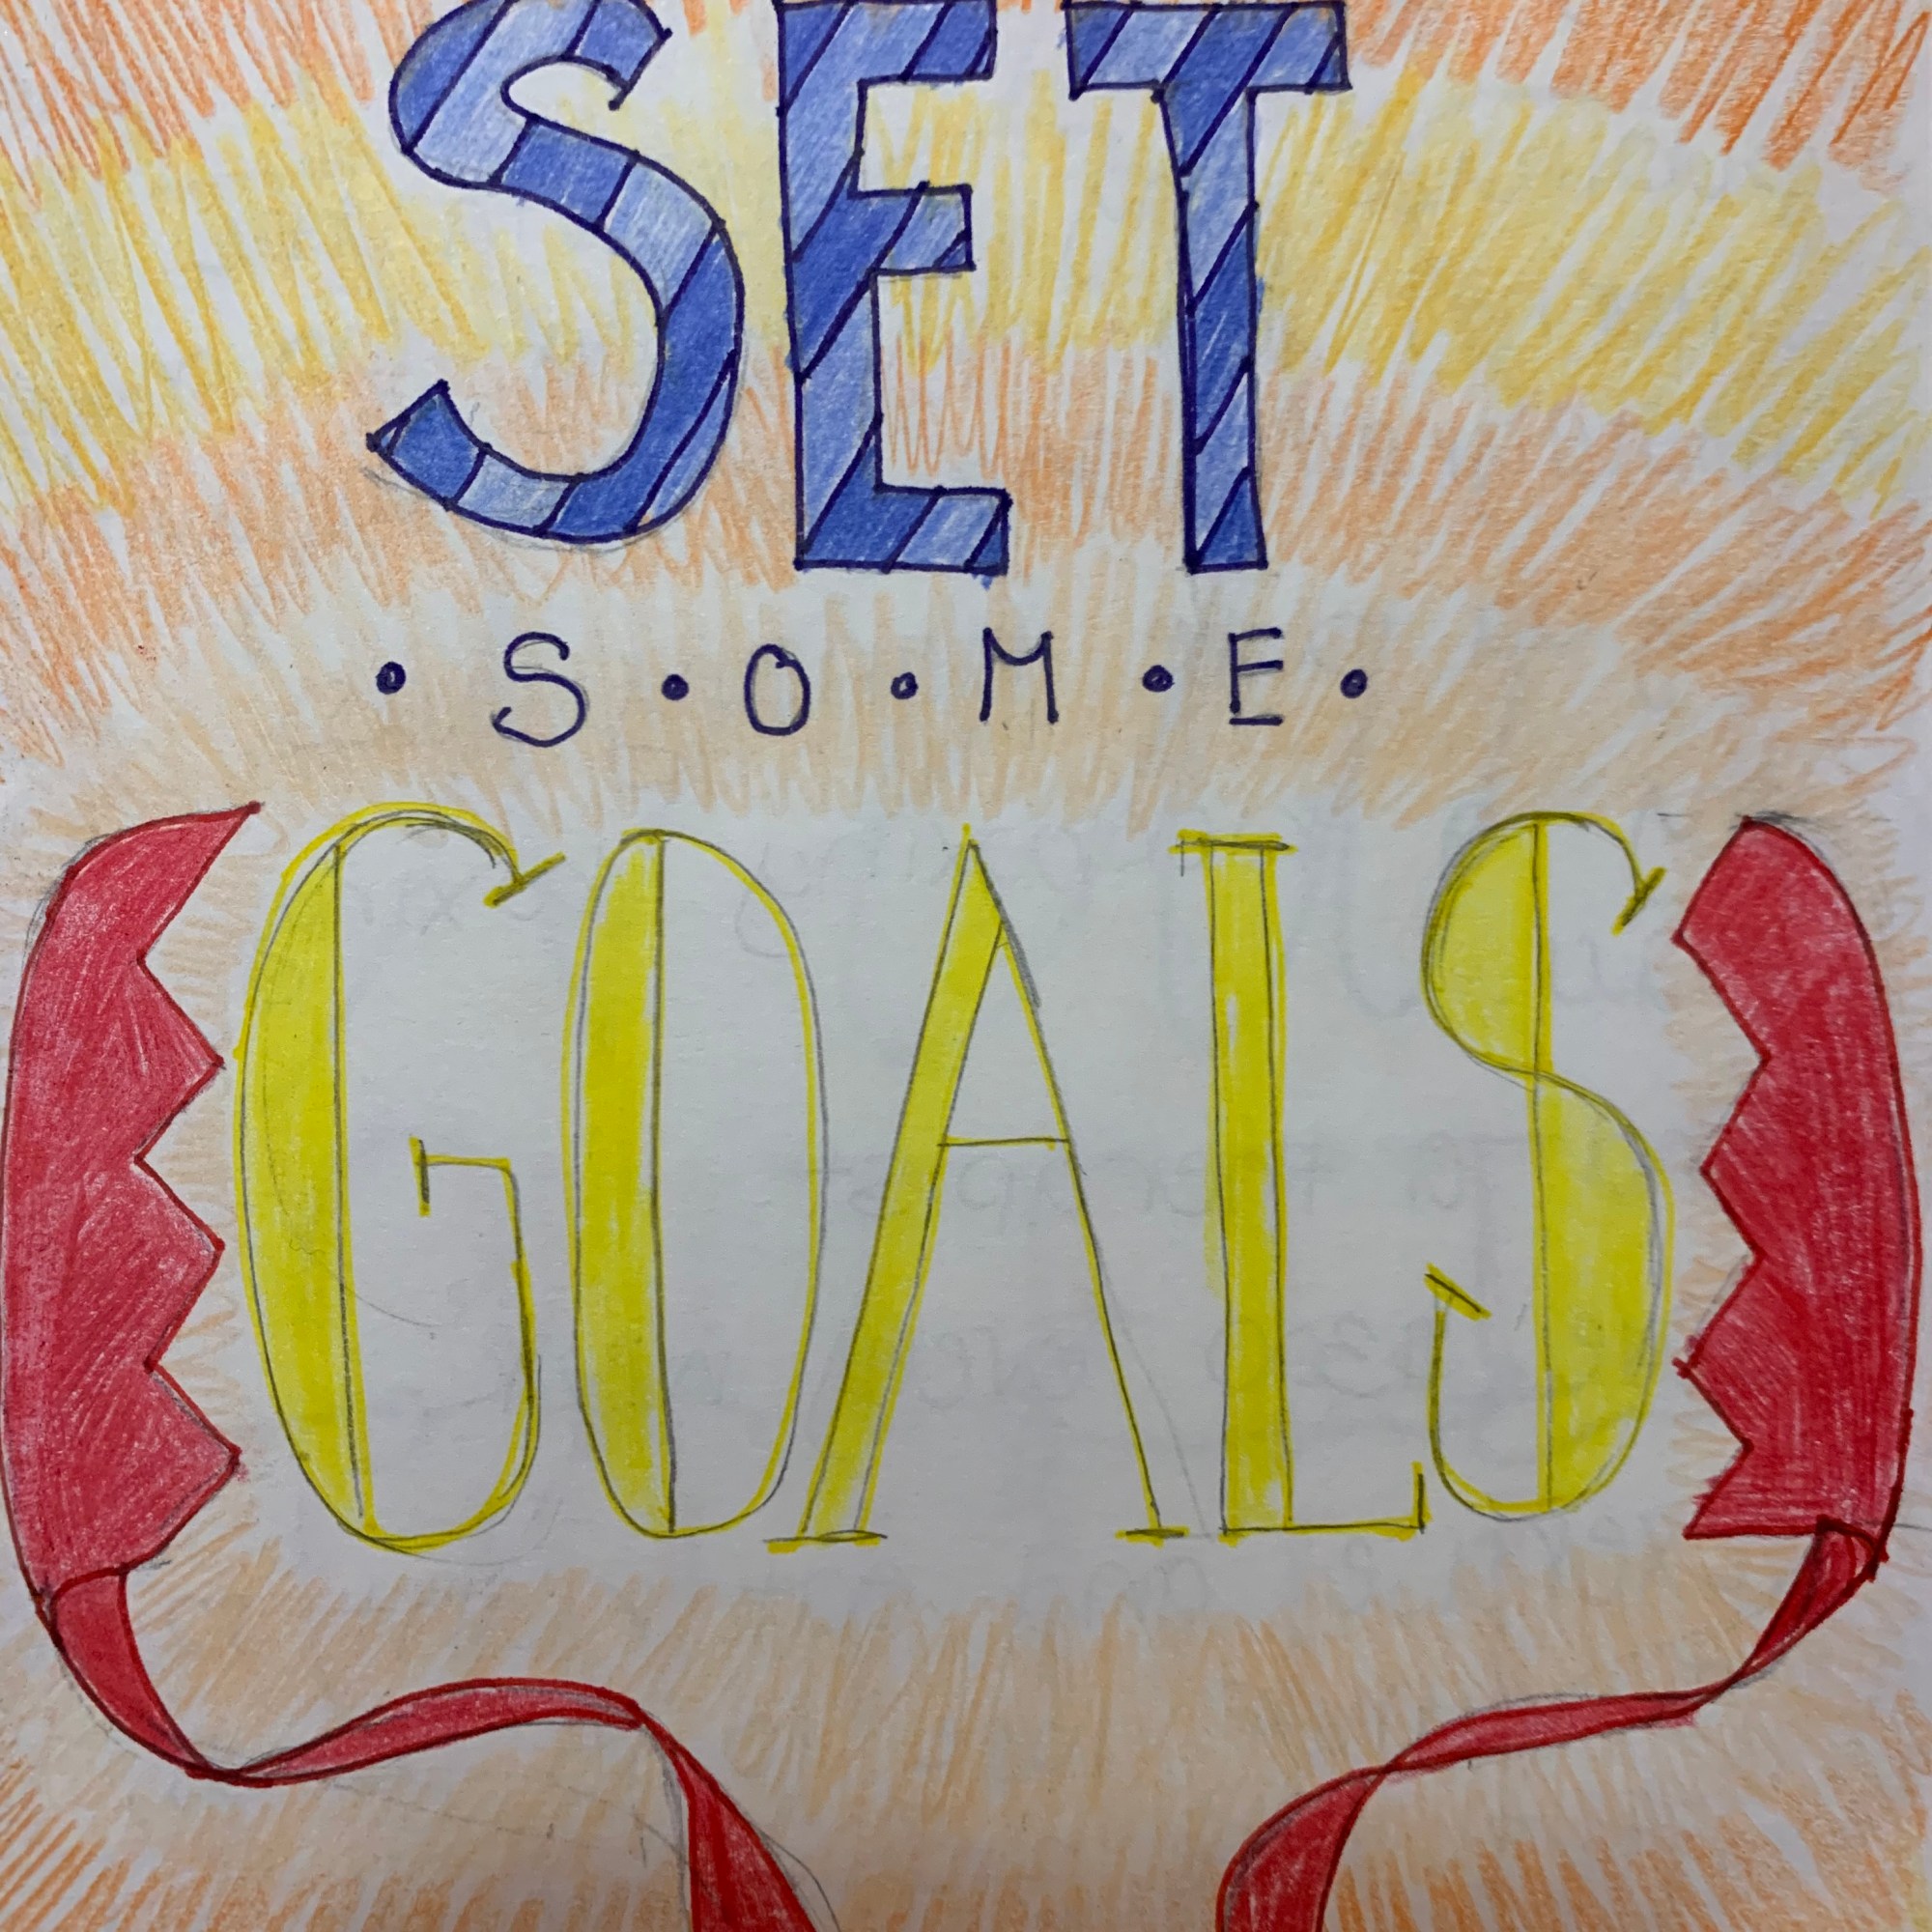 SET
• S • O • M • E •
GOALS